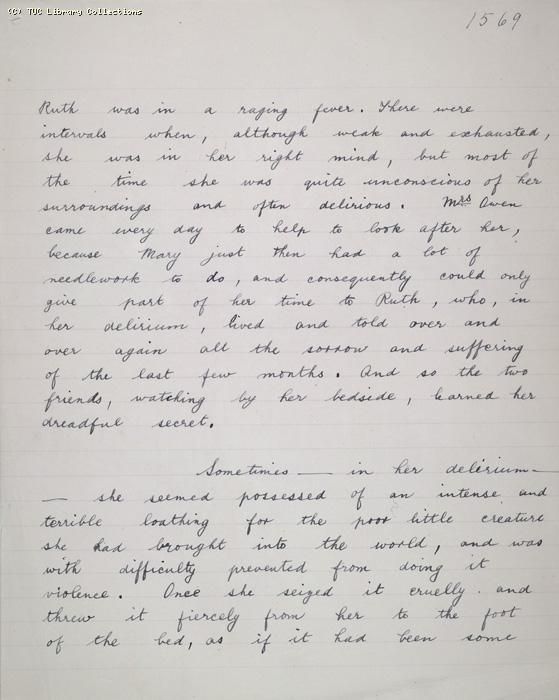 (C) TUC Library Collections
1569
Ruth was in a raging fever. There were
intervals when, although weak and exhausted,
she was in her right mind, but most of
the time she was quite unconscious of her
surroundings and often delirious. Mrs Owen
came every day to help to look after her,
because Mary just then had a lot of
needlework to do, and consequently could only
give part of her time to Ruth, who, in
her delirium, lived and told over and
over again all the sorrow and suffering
of the last few months. And so the two
friends, watching by her bedside, learned her
dreadful secret.
Sometimes — in her delirium —
— she seemed possessed of an intense and
terrible loathing for the poor little creature
she had brought into the world, and was
with difficulty prevented from doing it
violence. Once she seized it cruelly and
threw it fiercely from her to the foot
of the bed, as if it had been some